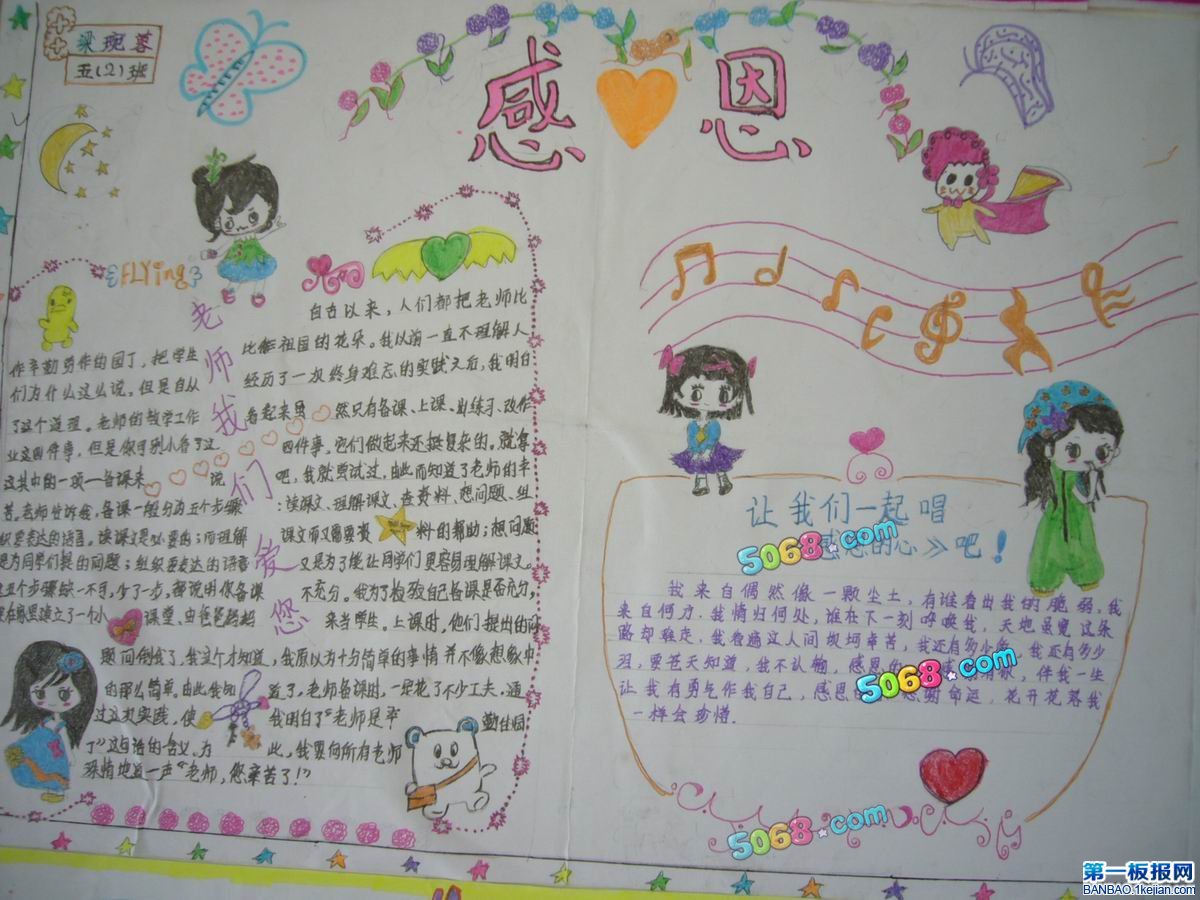 梁琬蓉
五(2)班
感恩
FLYing
老师我们爱您
自古以来，人们都把老师比
作辛勤劳作的园丁，把学生
比作祖国的花朵。我以前一直不理解人
们为什么这么说，但是自从
经历了一次终身难忘的实践之后，我明白
了这个道理。老师的教学工作
看起来虽然只有备课、上课、出练习、改作
业这四件事，但是你可别小看了这
四件事，它们做起来还挺复杂的。就拿
这其中的一项—备课来说
吧，我就尝试过，由此而知道了老师的辛
苦。老师告诉我，备课一般分为五个步骤
：读课文、理解课文、查资料、想问题、组
织要表达的语言。读课文是必要的；而理解
课文而又需要资料的帮助；想问题
是为同学们提的问题；组织要表达的语言
又是为了能让同学们更容易理解课文。
这五个步骤缺一不可，少了一步，都说明你备课
不充分。我为了检验自己备课是否充分，
课堂、由爸爸妈妈
来当学生。上课时，他们提出的问
题问倒我了，我这个才知道，我原以为十分简单的事情并不像想象中
的那么简单。由此我知道了，老师备课时，一定花了不少工夫，通
过这次实践，使我明白了“老师是辛勤的园
丁”这句话的含义。为此，我要向所有老师
深情地道一声“老师，您辛苦了！”
让我们一起唱
感恩的心》吧！
我来自偶然像一颗尘土，有谁看出我的脆弱，我
来自何方，我情归何处，谁在下一刻呼唤我，天地虽宽这条
路却难走，我看遍这人间坎坷辛苦，我还有多少爱，我还有多少
泪，要苍天知道，我不认输，感恩的心，伴我一生
让我有勇气作我自己，感恩感谢命运，花开花落我
一样会珍惜.
5068.com
5068.com
5068.com
第一板报网
BANBAO.1kejian.com